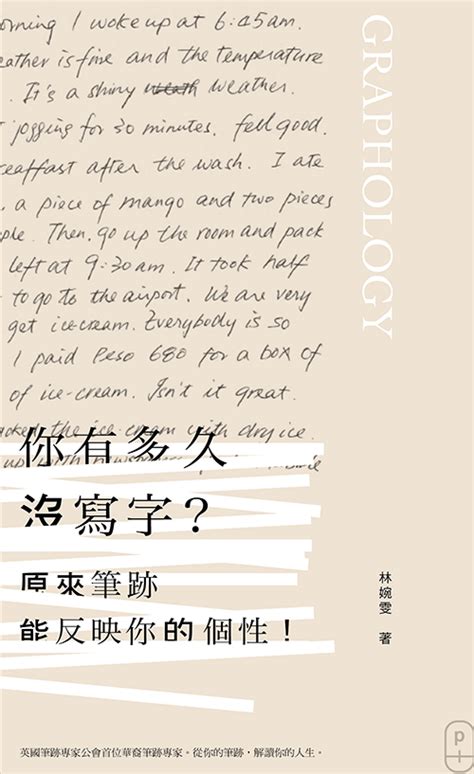 orning I woke up at 6:45am.
eather is fine and the temperature
. It's a shiny weath weather.
t jogging for 30 minutes. fell good.
reaffast after the wash. I ate
, a piece of mango and two pieces
ple. Then, go up the room and pack
left at 9:30am. It took half
to go to the airport. We are very
get ice-cream. Everybody is so
I paid Peso 680 for a box of
of ice-cream. Isn't it great.
acked the ice-cream with dry ice.
up with
GRAPHOLOGY
你有多久
沒寫字？
原來筆跡
能反映你的個性！
林婉雯 著
英國筆跡專家公會首位華裔筆跡專家。從你的筆跡，解讀你的人生。
p+